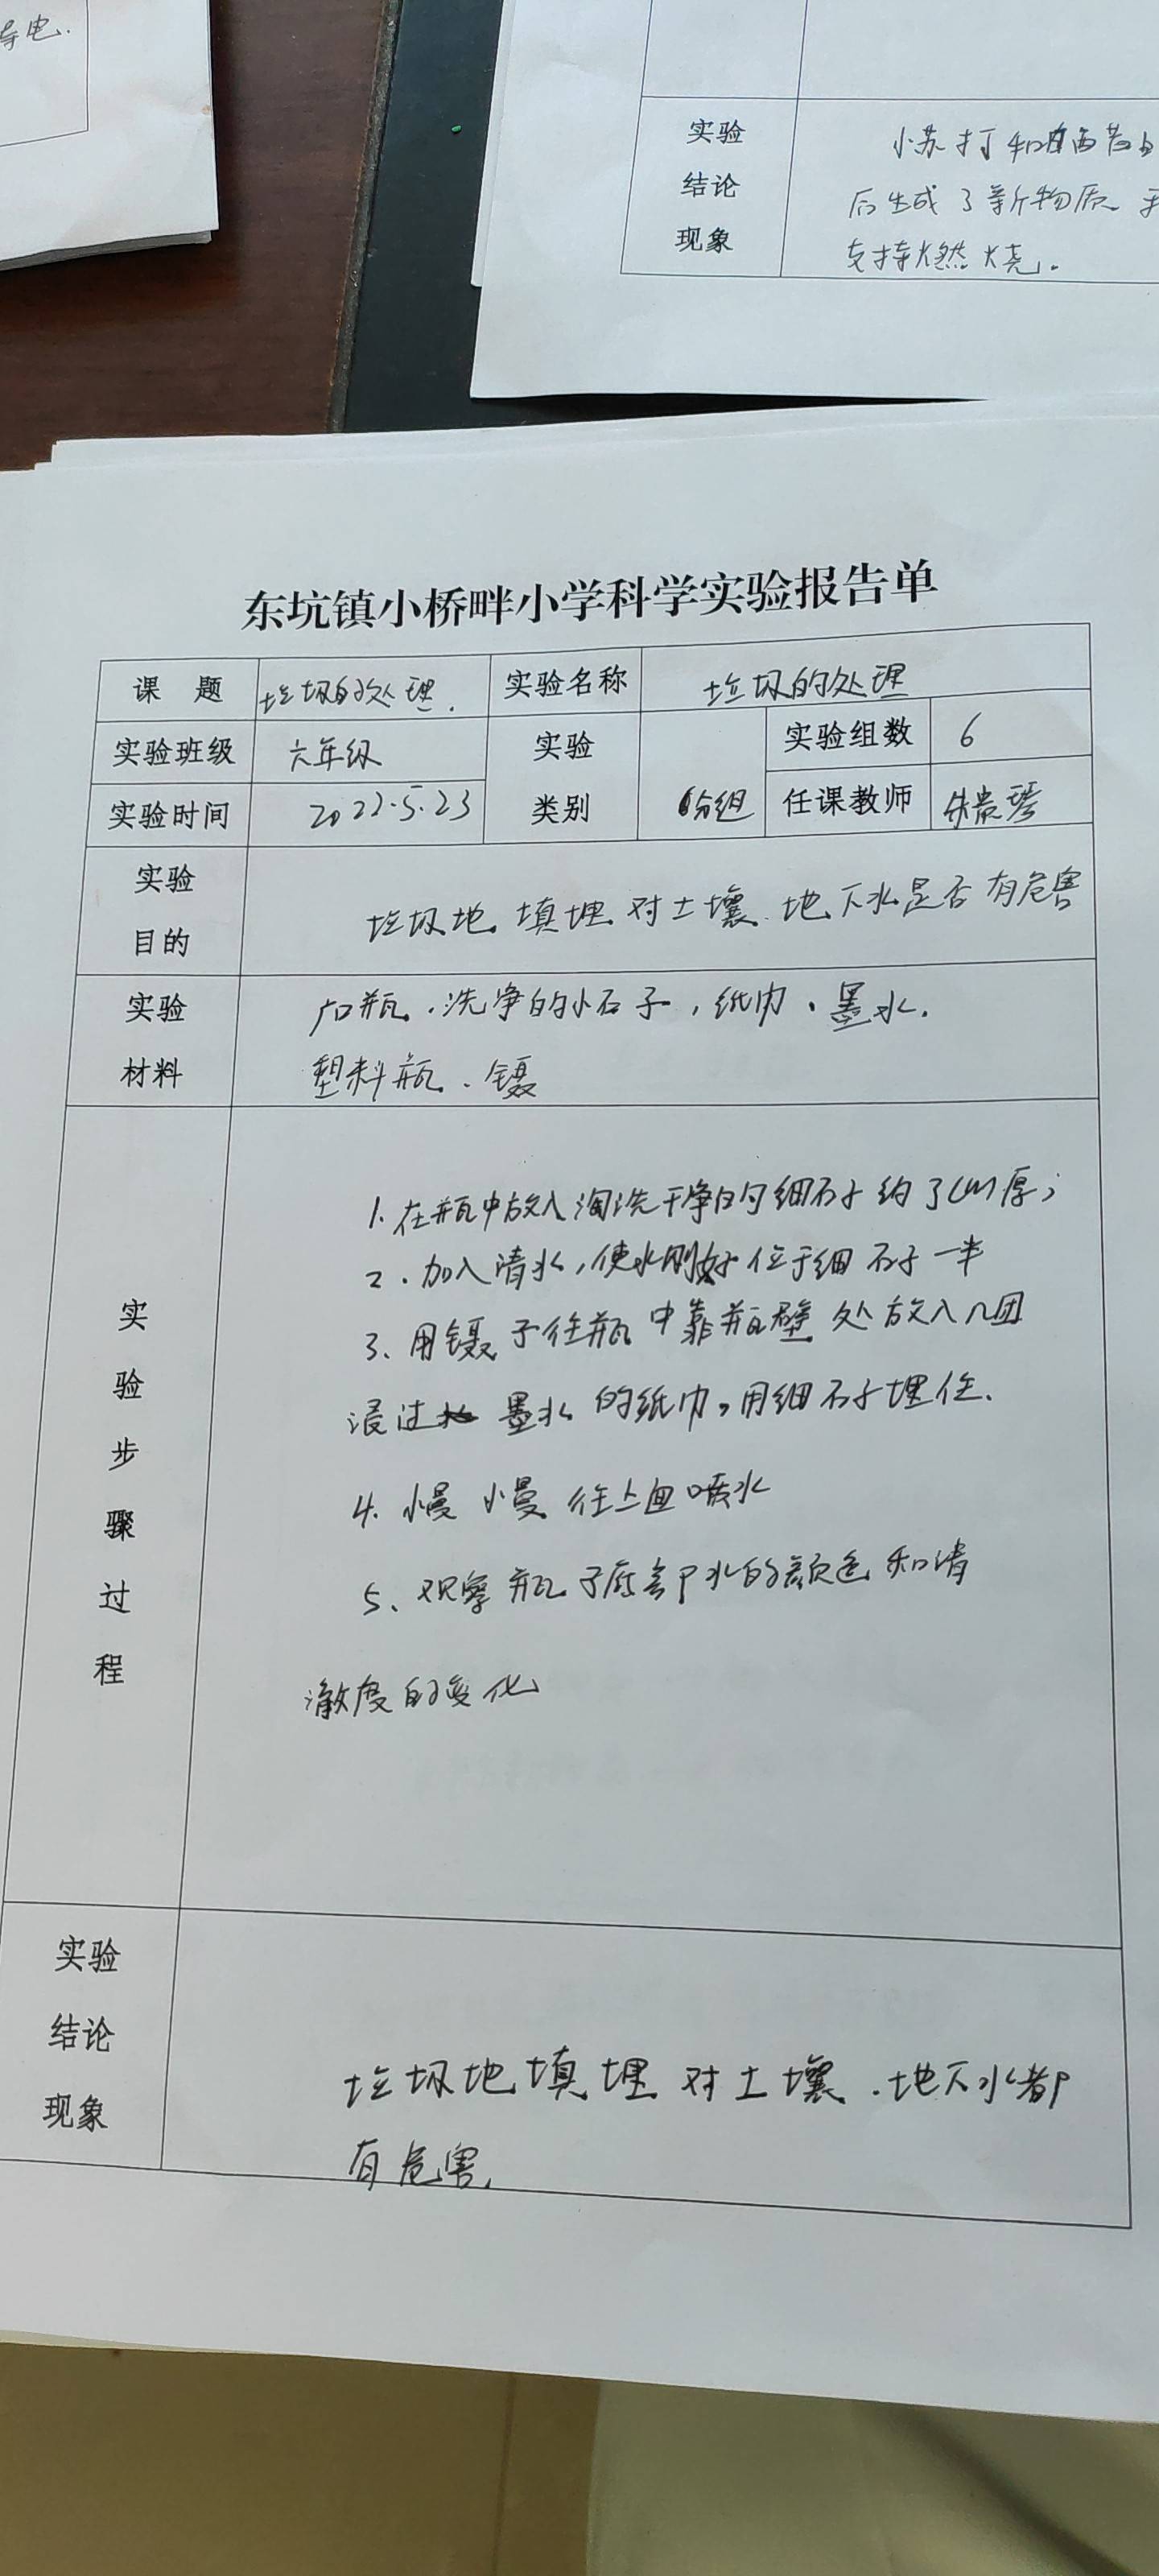 导电.
实验
结论
现象
小苏打和白
后生成了新物质
支持燃烧.
东坑镇小桥畔小学科学实验报告单
课 题 垃圾的处理. 实验名称 垃圾的处理
实验班级 六年级 实验类别 分组 实验组数 6
实验时间 2022.5.23 任课教师 朱贵琴
实验
目的
垃圾地填埋对土壤.地下水是否有危害
实验
材料
广口瓶.洗净的小石子,纸巾、墨水.
塑料瓶.镊
实验步骤过程
1.在瓶中放入淘洗干净的细石子约7cm厚;
2.加入清水,使水刚好位于细石子一半
3、用镊子往瓶中靠瓶壁处放入几团
浸过墨水的纸巾,用细石子埋住.
4.慢慢往上面喷水
5、观察瓶子底部水的颜色和清
澈度的变化
实验
结论
现象
垃圾地填埋对土壤.地下水都
有危害.